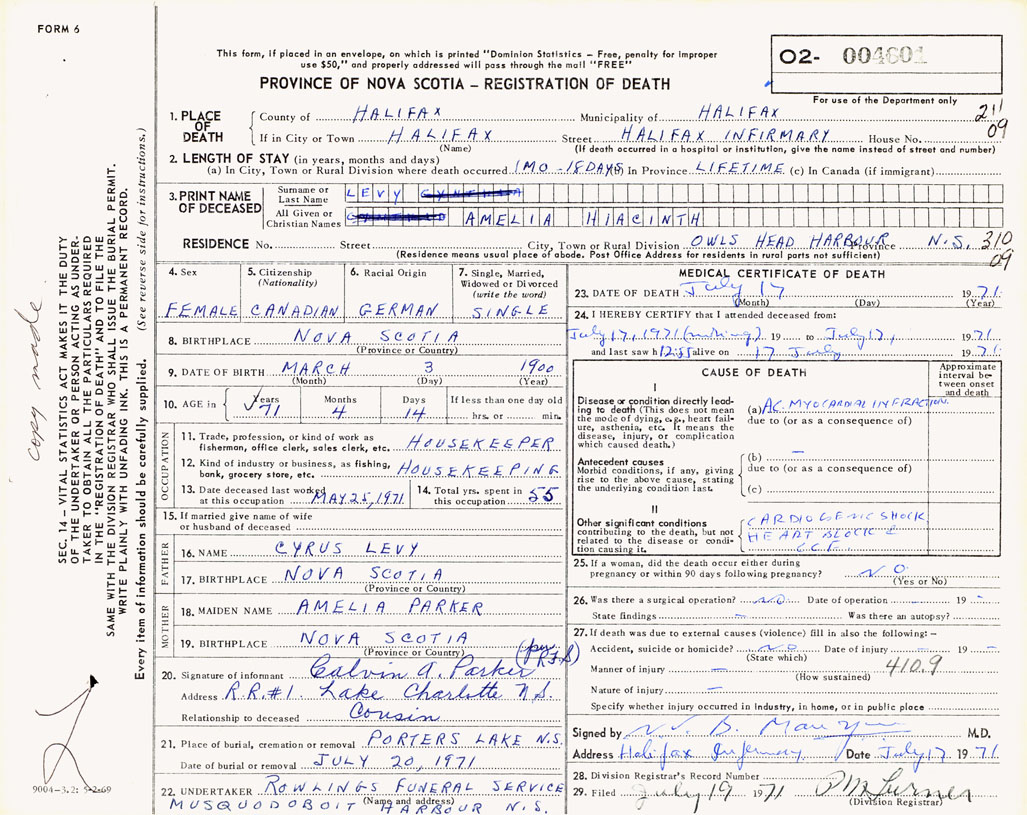 FORM 6
This form, if placed in an envelope, on which is printed "Dominion Statistics – Free, penalty for improper
use $50," and properly addressed will pass through the mail "FREE"
PROVINCE OF NOVA SCOTIA – REGISTRATION OF DEATH
02- 004601
For use of the Department only
211
09
1. PLACE OF DEATH
County of HALIFAX Municipality of HALIFAX
If in City or Town HALIFAX Street HALIFAX INFIRMARY House No.
(Name) (If death occurred in a hospital or institution, give the name instead of street and number)
2. LENGTH OF STAY (in years, months and days)
(a) In City, Town or Rural Division where death occurred 1 MO - 18 DAYS (b) In Province LIFETIME (c) In Canada (if immigrant)
3. PRINT NAME OF DECEASED
Surname or Last Name LEVY
All Given or Christian Names AMELIA HIACINTH
RESIDENCE No. Street City, Town or Rural Division OWLS HEAD HARBOUR Province N.S. 310
09
(Residence means usual place of abode. Post Office Address for residents in rural parts not sufficient)
4. Sex
FEMALE
5. Citizenship
(Nationality)
CANADIAN
6. Racial Origin
GERMAN
7. Single, Married,
Widowed or Divorced
(write the word)
SINGLE
8. BIRTHPLACE NOVA SCOTIA
(Province or Country)
9. DATE OF BIRTH MARCH 3 1900
(Month) (Day) (Year)
10. AGE in
Years Months Days If less than one day old
71 4 14 hrs. or min.
OCCUPATION
11. Trade, profession, or kind of work as
fisherman, office clerk, sales clerk, etc. HOUSEKEEPER
12. Kind of industry or business, as fishing,
bank, grocery store, etc. HOUSEKEEPING
13. Date deceased last worked
at this occupation MAY 25, 1971
14. Total yrs. spent in
this occupation 55
15. If married give name of wife
or husband of deceased
FATHER
16. NAME CYRUS LEVY
17. BIRTHPLACE NOVA SCOTIA
(Province or Country)
MOTHER
18. MAIDEN NAME AMELIA PARKER
19. BIRTHPLACE NOVA SCOTIA
(Province or Country)
(per R.F.S)
20. Signature of informant Calvin A. Parker
Address R.R.#1. Lake Charlotte N.S.
Relationship to deceased Cousin
21. Place of burial, cremation or removal PORTERS LAKE N.S.
Date of burial or removal JULY 20, 1971
22. UNDERTAKER ROWLINGS FUNERAL SERVICE
(Name and address)
MUSQUODOBOIT HARBOUR N.S.
MEDICAL CERTIFICATE OF DEATH
23. DATE OF DEATH July 17 1971
(Month) (Day) (Year)
24. I HEREBY CERTIFY that I attended deceased from:
July 17, 1971 19 to July 17, 1971
and last saw h alive on 17 July 1971
CAUSE OF DEATH
Approximate
interval be-
tween onset
and death
I
Disease or condition directly lead-
ing to death (This does not mean
the mode of dying, e.g., heart fail-
ure, asthenia, etc. It means the
disease, injury, or complication
which caused death.)
(a) AC. MYOCARDIAL INFRACTION.
due to (or as a consequence of)
Antecedent causes
Morbid conditions, if any, giving
rise to the above cause, stating
the underlying condition last.
(b) —
due to (or as a consequence of)
(c)
II
Other significant conditions
contributing to the death, but not
related to the disease or condi-
tion causing it.
CARDIOGENIC SHOCK
HEART BLOCK
C.C.F.
25. If a woman, did the death occur either during
pregnancy or within 90 days following pregnancy? NO
(Yes or No)
26. Was there a surgical operation? NO Date of operation — 19 —
State findings — Was there an autopsy?
27. If death was due to external causes (violence) fill in also the following: –
Accident, suicide or homicide? NO Date of injury — 19 —
(State which)
Manner of injury — 410.9
(How sustained)
Nature of injury —
Specify whether injury occurred in industry, in home, or in public place
Signed by M.D.
Address Halifax Infirmary Date July 17 1971
28. Division Registrar's Record Number
29. Filed July 19 1971
(Division Registrar)
SEC. 14 – VITAL STATISTICS ACT MAKES IT THE DUTY
OF THE UNDERTAKER OR PERSON ACTING AS UNDER-
TAKER TO OBTAIN ALL THE PARTICULARS REQUIRED
IN THE "REGISTRATION OF DEATH" AND TO FILE THE
SAME WITH THE DIVISION REGISTRAR WHO SHALL ISSUE THE BURIAL PERMIT.
WRITE PLAINLY WITH UNFADING INK. THIS IS A PERMANENT RECORD.
Every item of information should be carefully supplied. (See reverse side for instructions.)
copy made
9004-3.2: 5-2-69